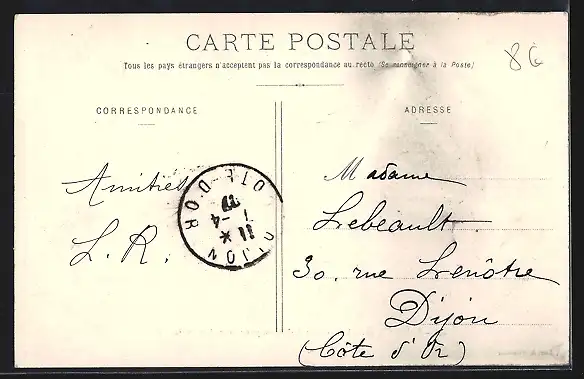 CARTE POSTALE
Tous les pays étrangers n'acceptent pas la correspondance au recto (Se renseigner à la Poste)
86
CORRESPONDANCE
ADRESSE
Amitiés
L. R.
DIJON
COTE-D'OR
11 *
1-4
Madame
Lebeault
30, rue Lenôtre
Dijon
(Côte d'Or)